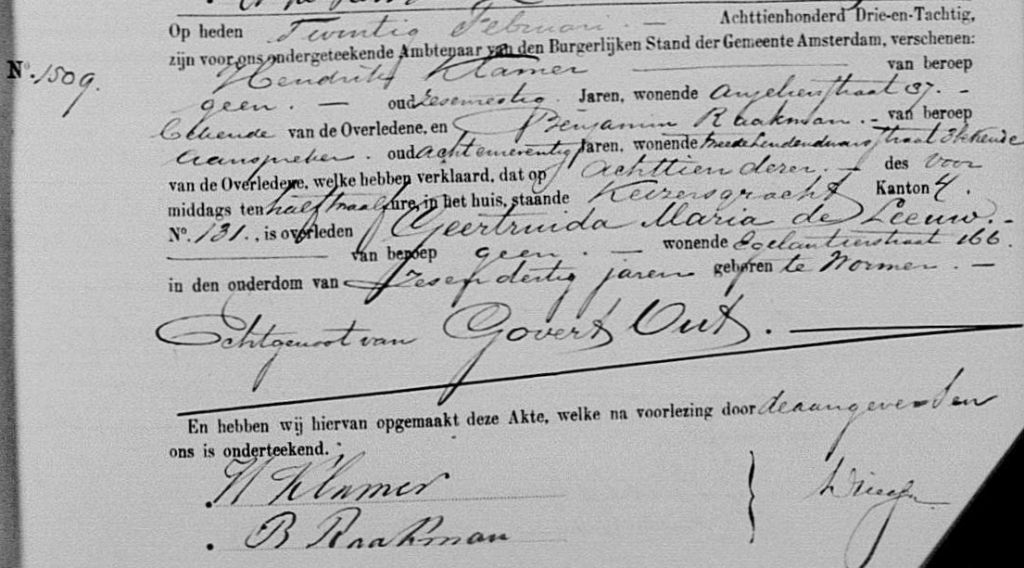 Op heden Twintig Februari. — Achttienhonderd Drie-en-Tachtig,
zijn voor ons ondergeteekende Ambtenaar van den Burgerlijken Stand der Gemeente Amsterdam, verschenen:
No. 1509. Hendrik Klamer van beroep
geen. — oud zesenveertig Jaren, wonende Anjelierstraat 37. -
Bekende van de Overledene, en Benjamin Raakman. - van beroep
Aanspreker. oud achtenveertig Jaren, wonende straat 3 bekende
van de Overledene, welke hebben verklaard, dat op achttien dezer. — des voor
middags ten half twaalf ure, in het huis, staande Keizersgracht Kanton 4.
No. 131., is overleden Geertruida Maria de Leeuw. -
van beroep geen. — wonende Egelantierstraat 166.
in den ouderdom van Zesendertig jaren geboren te Wormer. —
Echtgenoot van Govert Out.
En hebben wij hiervan opgemaakt deze Akte, welke na voorlezing door de aangevers en
ons is onderteekend.
H Klamer
B Raakman